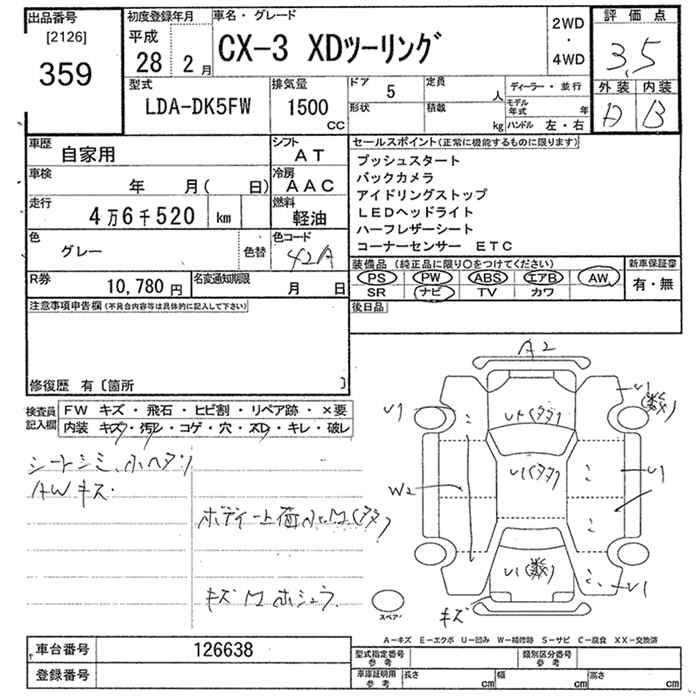 出品番号
[2126]
359
初度登録年月
平成
28 2 月
車名・グレード
CX-3 XDツーリング
2WD
・
4WD
評価点
3.5
型式
LDA-DK5FW
排気量
1500
CC
ドア 5
定員 人
形状
積載 kg
ディーラー・並行
モデル年式 年
ハンドル 左・右
外装 内装
A B
車歴
自家用
シフト
AT
車検
年 月( 日)
冷房
AAC
走行
4万6千520 km
燃料
軽油
色
グレー
色替
色コード
42A
R券
10,780 円
名変通知期限
月 日
セールスポイント(正常に機能するものに限ります)
プッシュスタート
バックカメラ
アイドリングストップ
LEDヘッドライト
ハーフレザーシート
コーナーセンサー ETC
装備品 (純正品に限り○をつけてください)
PS PW ABS エアB AW
SR ナビ TV カワ
新車保証書
有・無
後日品
注意事項申告欄(不具合内容等は具体的に記入して下さい)
修復歴 有〔箇所 〕
検査員記入欄
FW キズ・飛石・ヒビ割・リペア跡・×要
内装 キズ・汚レ・コゲ・穴・スレ・キレ・破レ
シートシミ、小ヘタリ
AWキズ
キズ
A2
U1
U1
(数)
W2
U1
U1(数)
U1
キズ
スペア
A-キズ E-エクボ U-凹み W-補修跡 S-サビ C-腐食 XX-交換済
車台番号
126638
登録番号
型式指定番号
参考
類別区分番号
参考
車庫証明用
参考
長さ cm
幅 cm
高さ cm